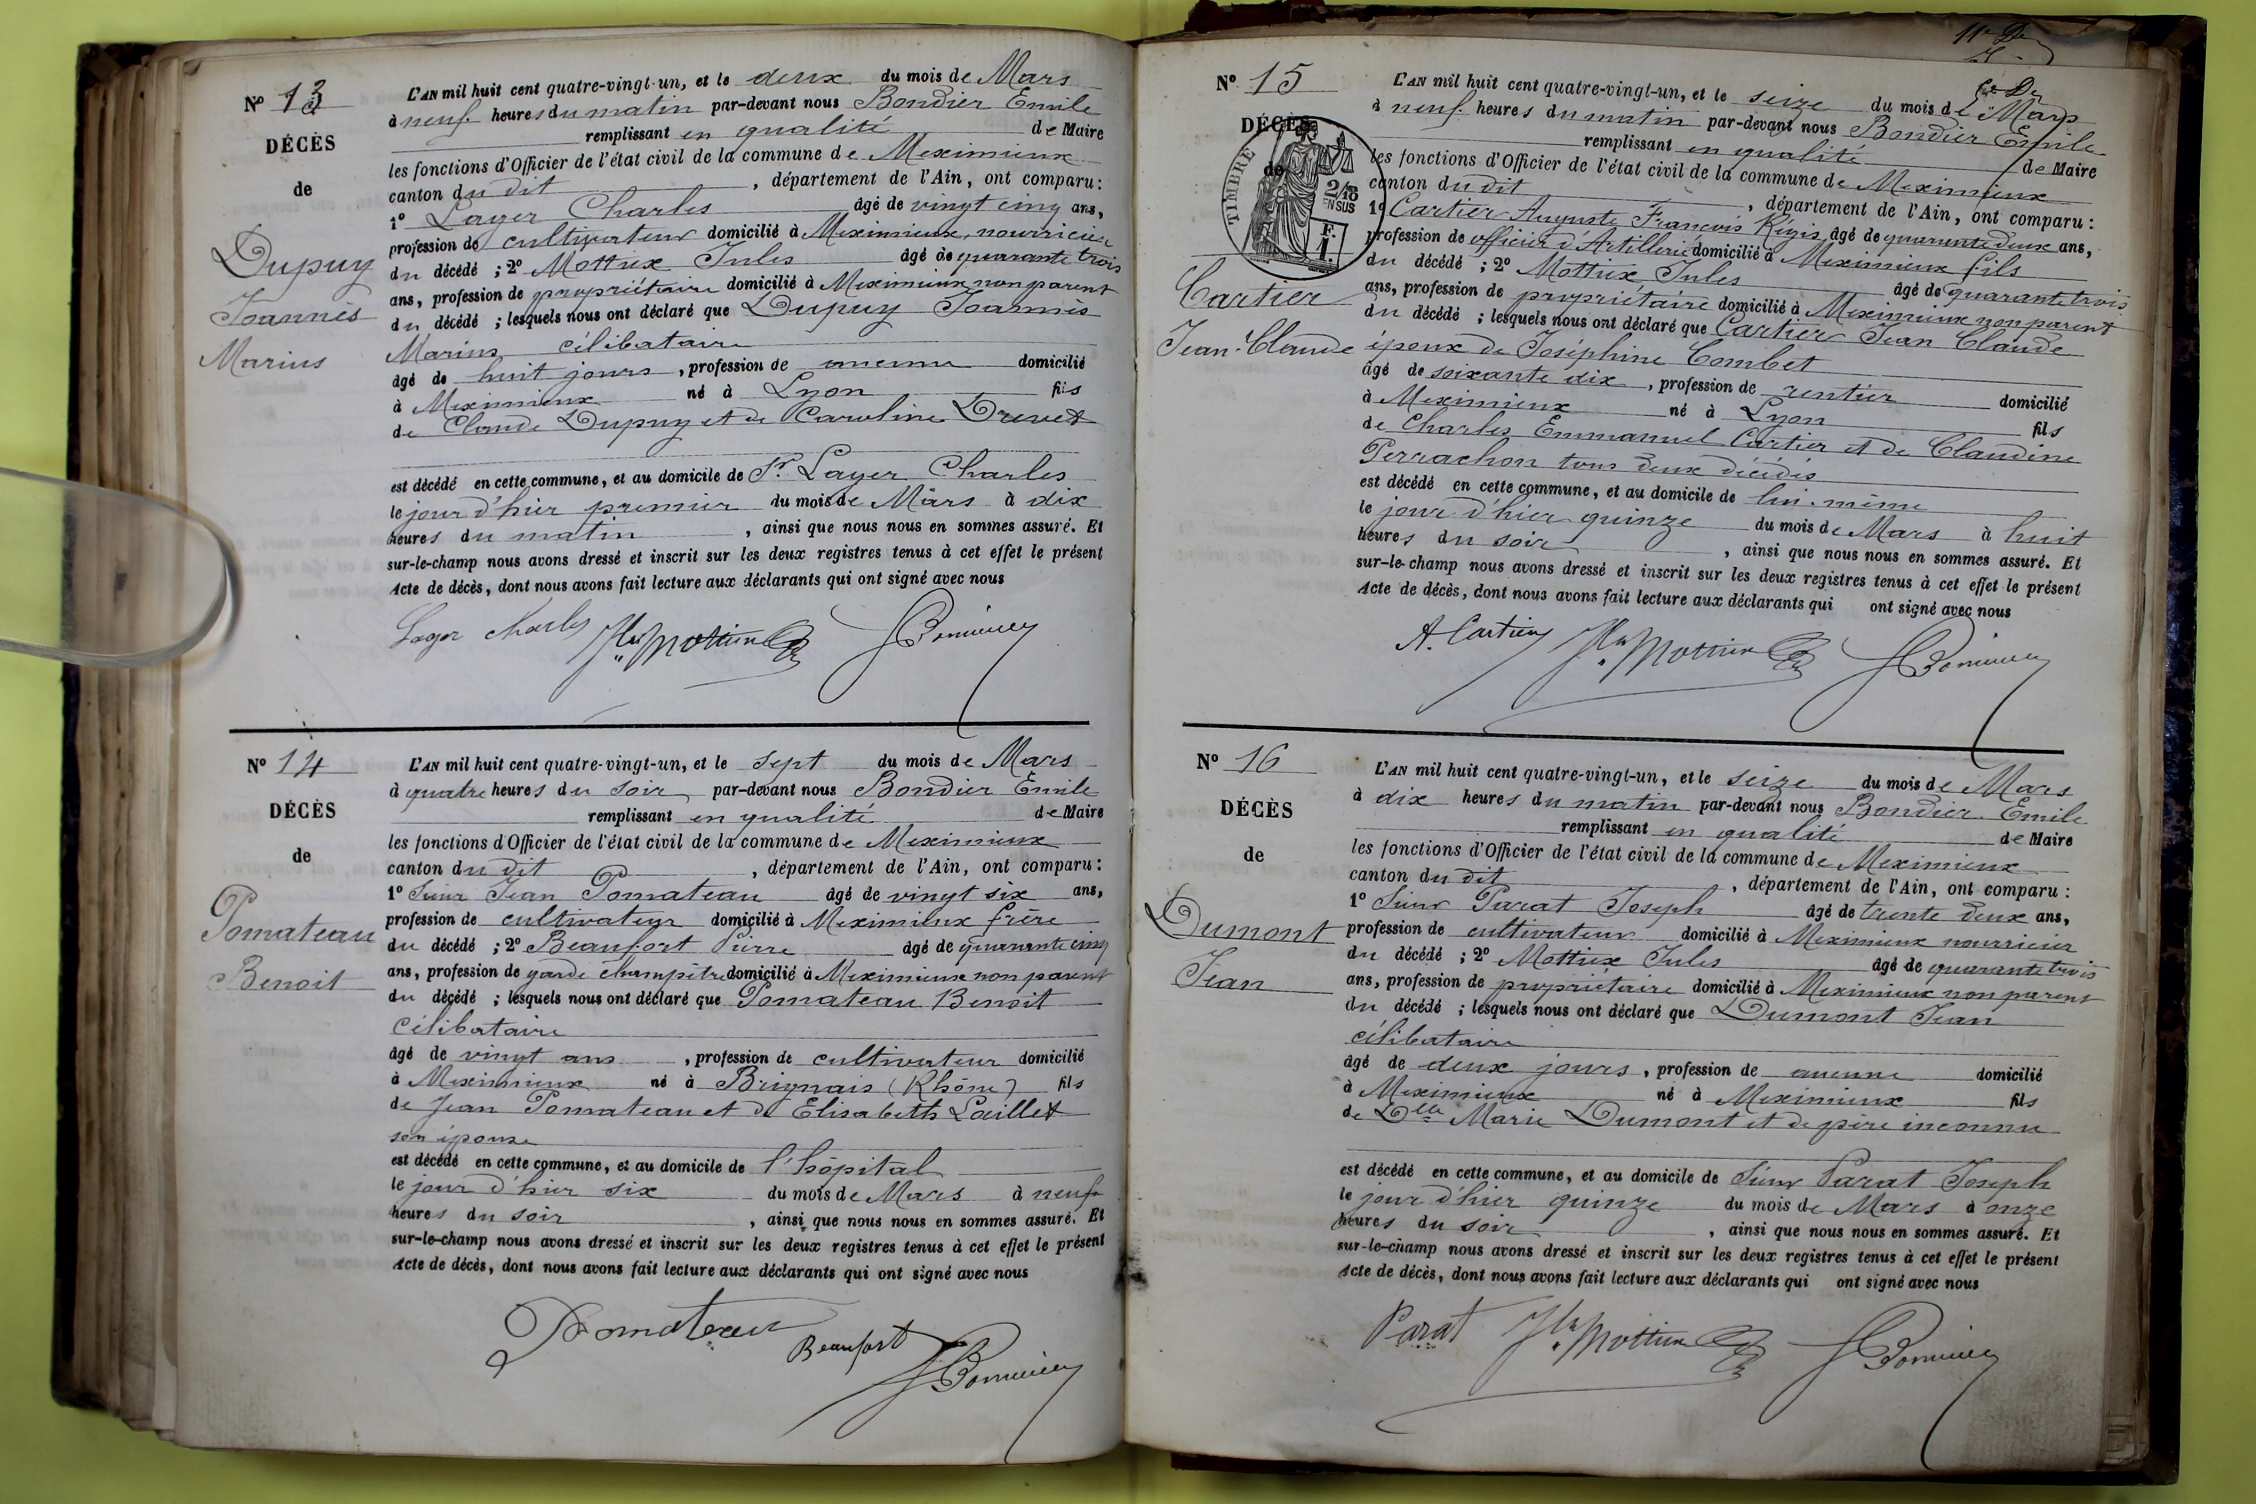 Nº 13
DÉCÈS
de
Dupuy
Joannès
Marius
L'AN mil huit cent quatre-vingt-un, et le deux du mois de Mars
à neuf heures du matin par-devant nous Bondier Emile
remplissant en qualité de Maire
les fonctions d'Officier de l'état civil de la commune de Meximieux
canton du dit , département de l'Ain, ont comparu:
1º Layer Charles âgé de vingt cinq ans,
profession de cultivateur domicilié à Meximieux, nourricier
du décédé ; 2º Mottux Jules âgé de quarante trois
ans, profession de propriétaire domicilié à Meximieux non parent
du décédé ; lesquels nous ont déclaré que Dupuy Joannès
Marius célibataire
âgé de huit jours , profession de aucune domicilié
à Meximieux né à Lyon fils
de Claude Dupuy et de Caroline Drevet
est décédé en cette commune, et au domicile de Sr Layer Charles
le jour d'hier premier du mois de Mars à dix
heures du matin , ainsi que nous nous en sommes assuré. Et
sur-le-champ nous avons dressé et inscrit sur les deux registres tenus à cet effet le présent
Acte de décès, dont nous avons fait lecture aux déclarants qui ont signé avec nous
Layer Charles
Nº 14
DÉCÈS
de
Pomateau
Benoit
L'AN mil huit cent quatre-vingt-un, et le sept du mois de Mars
à quatre heures du soir par-devant nous Bondier Emile
remplissant en qualité de Maire
les fonctions d'Officier de l'état civil de la commune de Meximieux
canton du dit , département de l'Ain, ont comparu:
1º Sieur Jean Pomateau âgé de vingt six ans,
profession de cultivateur domicilié à Meximieux frère
du décédé ; 2º Beaufort Pierre âgé de quarante cinq
ans, profession de garde champêtre domicilié à Meximieux non parent
du décédé ; lesquels nous ont déclaré que Pomateau Benoit
célibataire
âgé de vingt ans , profession de cultivateur domicilié
à Meximieux né à Brignais (Rhône) fils
de Jean Pomateau et de Elisabeth Laillet
son épouse
est décédé en cette commune, et au domicile de l'hôpital
le jour d'hier six du mois de Mars à neuf
heures du soir , ainsi que nous nous en sommes assuré. Et
sur-le-champ nous avons dressé et inscrit sur les deux registres tenus à cet effet le présent
Acte de décès, dont nous avons fait lecture aux déclarants qui ont signé avec nous
Pomateau Beaufort
Nº 15
DÉCÈS
de
TIMBRE
2/10 EN SUS
F. 1.
Cartier
Jean-Claude
L'AN mil huit cent quatre-vingt-un, et le seize du mois de Mars
à neuf heures du matin par-devant nous Bondier Emile
remplissant en qualité de Maire
les fonctions d'Officier de l'état civil de la commune de Meximieux
canton du dit , département de l'Ain, ont comparu:
1º Cartier Auguste François Régis âgé de quarante deux ans,
profession de officier d'Artillerie domicilié à Meximieux fils
du décédé ; 2º Mottux Jules âgé de quarante trois
ans, profession de propriétaire domicilié à Meximieux non parent
du décédé ; lesquels nous ont déclaré que Cartier Jean Claude
époux de Joséphine Combet
âgé de soixante dix , profession de rentier domicilié
à Meximieux né à Lyon fils
de Charles Emmanuel Cartier et de Claudine
Perrachon tous deux décédés
est décédé en cette commune, et au domicile de lui-même
le jour d'hier quinze du mois de Mars à huit
heures du soir , ainsi que nous nous en sommes assuré. Et
sur-le-champ nous avons dressé et inscrit sur les deux registres tenus à cet effet le présent
Acte de décès, dont nous avons fait lecture aux déclarants qui ont signé avec nous
A. Cartier
Nº 16
DÉCÈS
de
Dumont
Jean
L'AN mil huit cent quatre-vingt-un, et le seize du mois de Mars
à dix heures du matin par-devant nous Bondier Emile
remplissant en qualité de Maire
les fonctions d'Officier de l'état civil de la commune de Meximieux
canton du dit , département de l'Ain, ont comparu:
1º Sieur Parat Joseph âgé de trente deux ans,
profession de cultivateur domicilié à Meximieux nourricier
du décédé ; 2º Mottux Jules âgé de quarante trois
ans, profession de propriétaire domicilié à Meximieux non parent
du décédé ; lesquels nous ont déclaré que Dumont Jean
célibataire
âgé de deux jours , profession de aucune domicilié
à Meximieux né à Meximieux fils
de Dlle Marie Dumont et de père inconnu
est décédé en cette commune, et au domicile de Sieur Parat Joseph
le jour d'hier quinze du mois de Mars à onze
heures du soir , ainsi que nous nous en sommes assuré. Et
sur-le-champ nous avons dressé et inscrit sur les deux registres tenus à cet effet le présent
Acte de décès, dont nous avons fait lecture aux déclarants qui ont signé avec nous
Parat